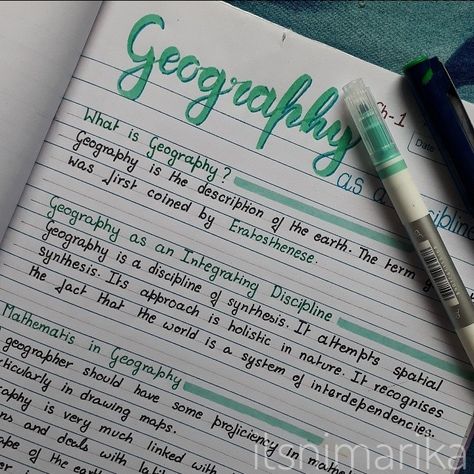 Geography
Ch-1
Date
as a discipline
What is Geography?
Geography is the description of the earth. The term
was first coined by Eratosthenese.
Geography as an Integrating Discipline
Geography is a discipline of synthesis. It attempts spatial
synthesis. Its approach is holistic in nature. It recognises
the fact that the world is a system of interdependencies.
Mathematis in Geography
geographer should have some proficiency in
ticularly in drawing maps.
raphy is very much linked with
and deals with
ape of the earth
itsnimarika